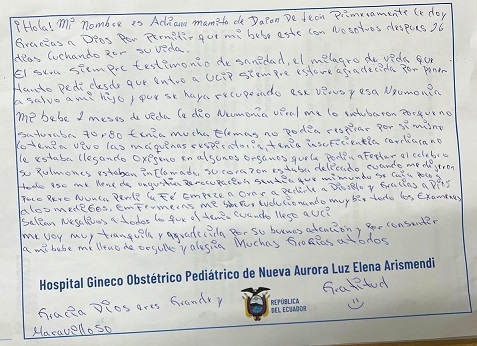 ¡Hola! Mi Nombre es Adriana mamita de Daion De leon Primeramente le doy
Gracias a Dios Por Permitir que mi bebe este con Nosotros despues 26
dias luchando por su vida.
El sera siempre testimonio de sanidad, el milagro de vida que
tanto Pedi desde que entro a UCIP siempre estare agradecida por poner
a salvo a mi hijo y que se haya recuperado ese virus y esa Neumonia
Mi bebe 2 meses de vida le dio Neumonia viral me lo intubaron Porque no
saturaba 70 r 80 tenia mucha flemas no podia respirar por si mismo
lo tenia vivo las maquinas respiratoria, tenia insuficiencia cardiaca no
le estaba llegando Oxigeno en algunos organos que le podia afectar el celebro
su Pulmones estaban inflamada, su corazon estaba delicado cuando me dijeron
todo eso me llene de angustia Preocupacion sentia que mi mundo se caia poco a
Poco Pero Nunca Perdi la Fe Empece Orar a Pedirle a Dios y Gracias a Dios
a los medicos, Enfermeras mi bebe fue Evolucionando muy bien todo los Examenes
Salian Negativos a todos lo que el tenia cuando llego a UCI
me voy muy tranquila y agradecida por su buenos atencion y por consentir
a mi bebe me lleno de orgullo y alegria Muchas Gracias a todos
Hospital Gineco Obstétrico Pediátrico de Nueva Aurora Luz Elena Arismendi
Gracia Dios eres Grande y
Maravilloso
REPÚBLICA
DEL ECUADOR
Gratitud